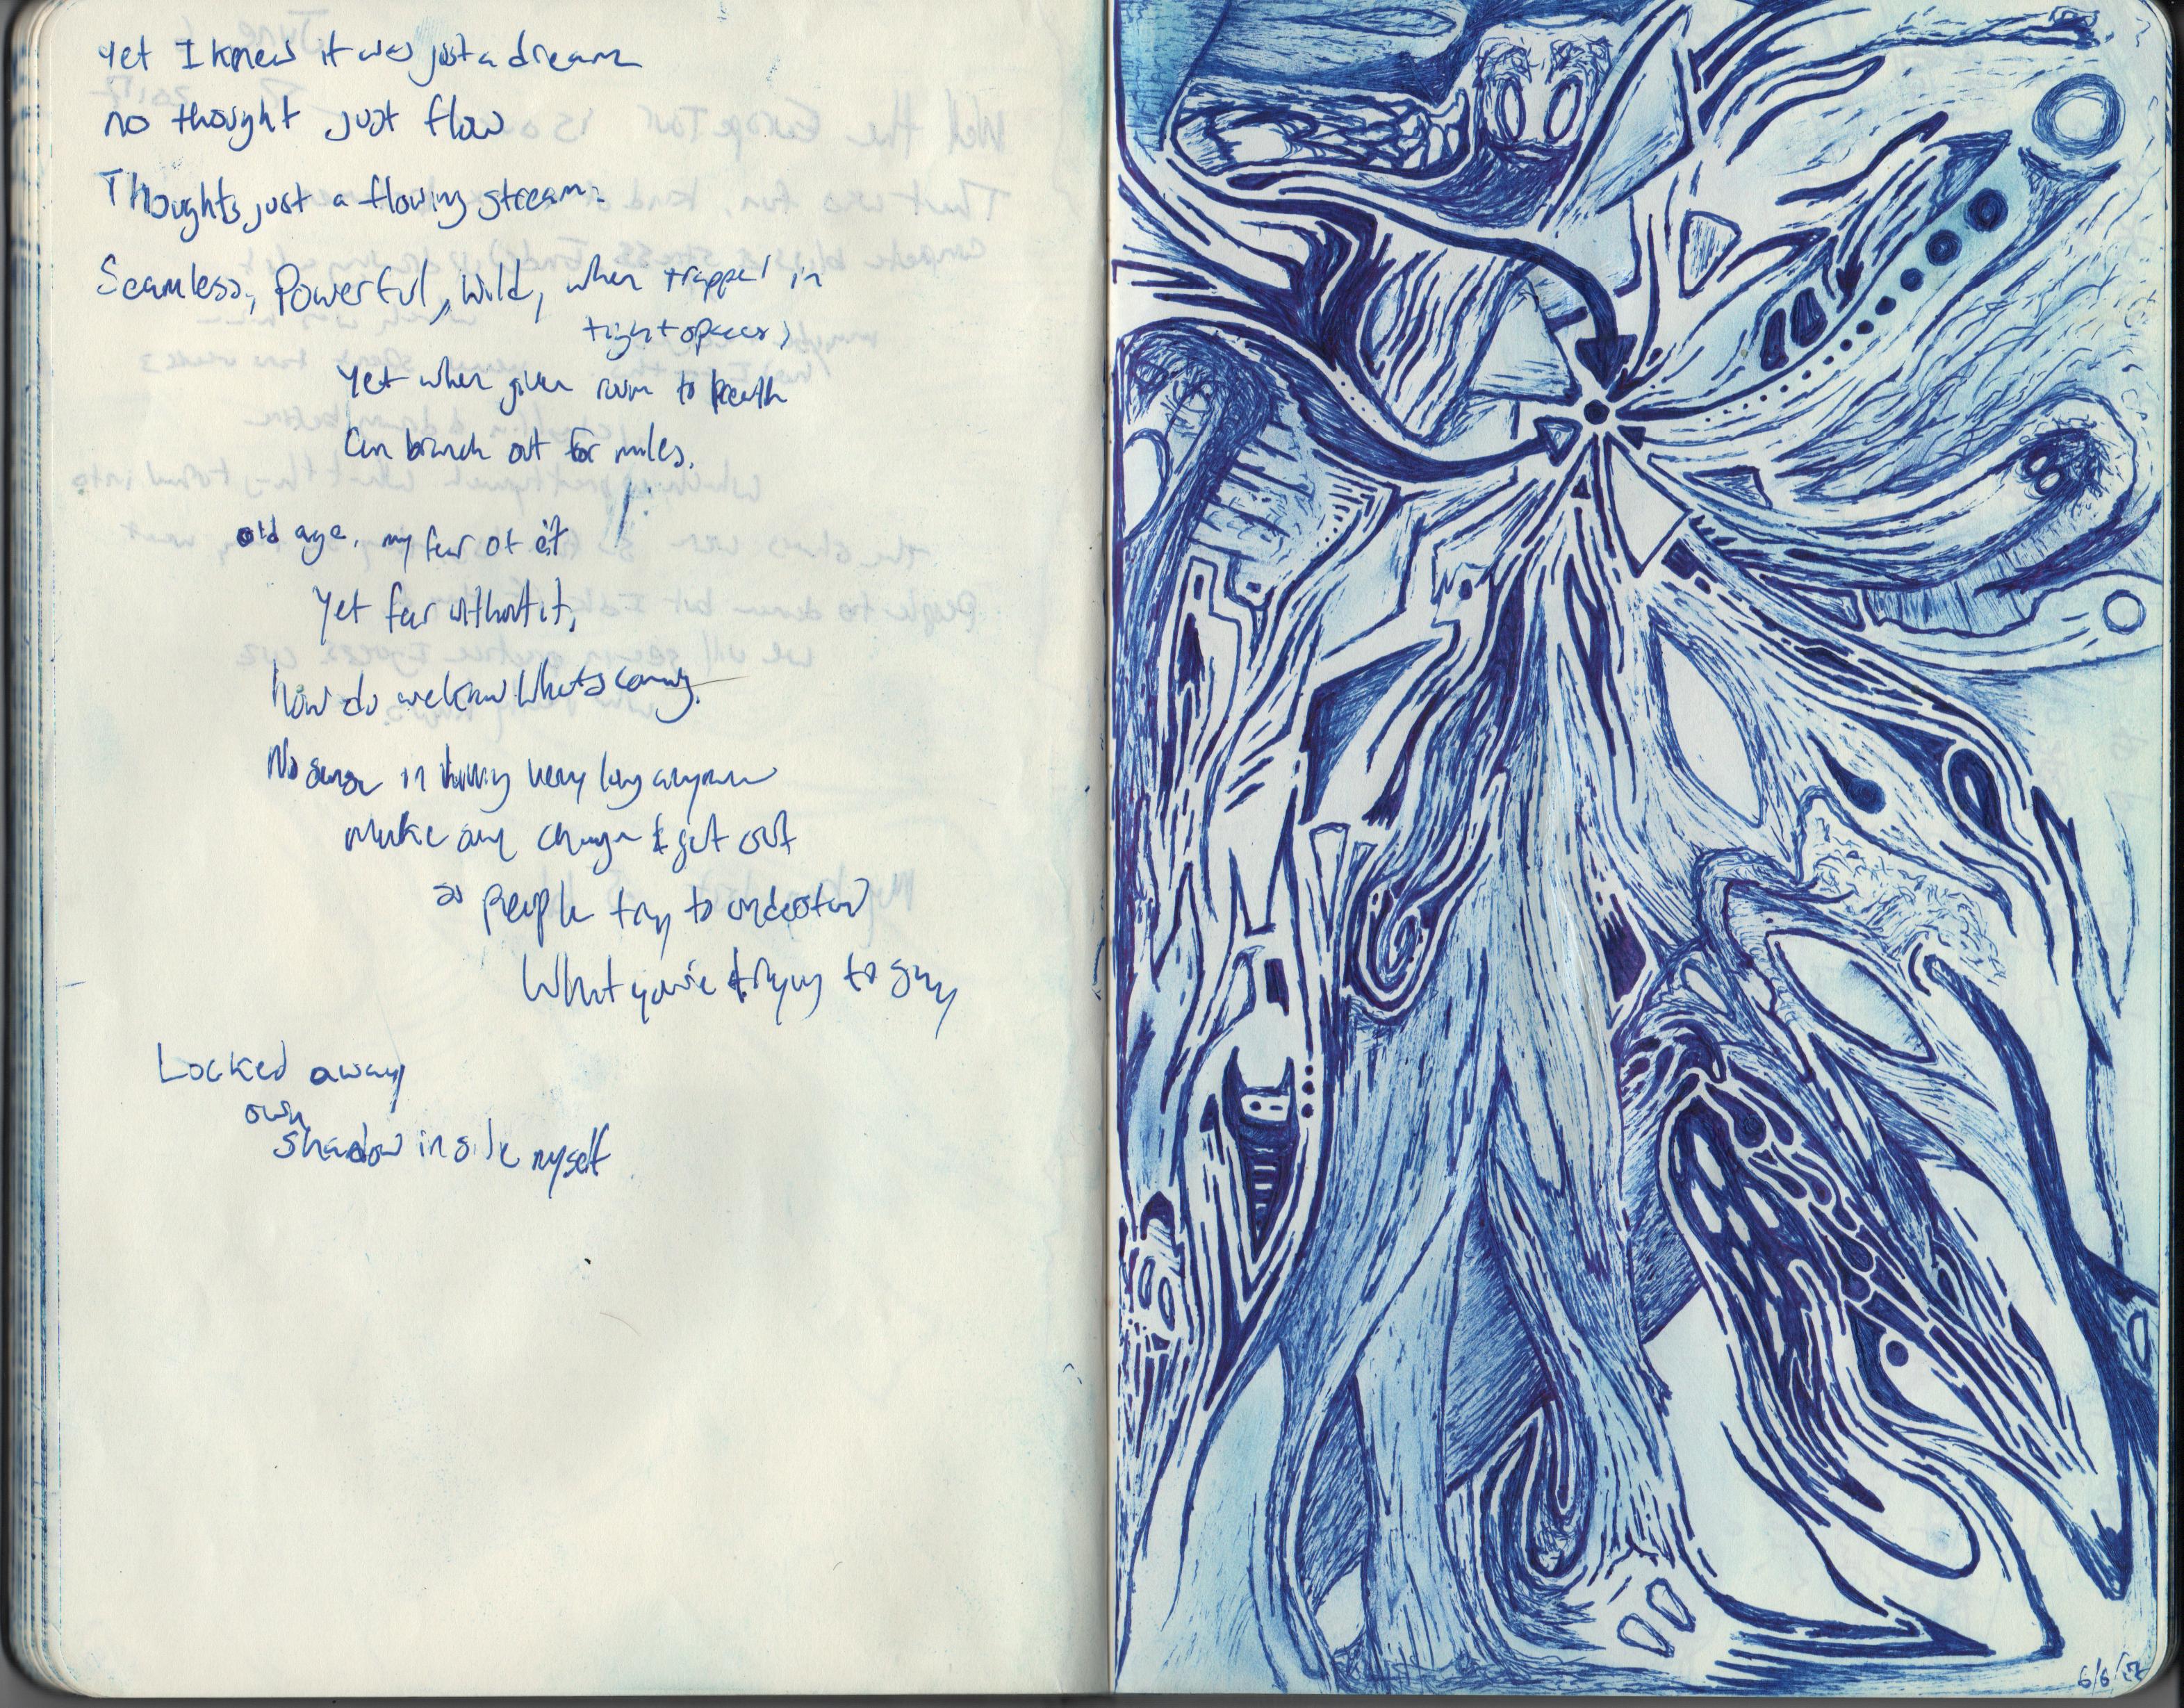 Yet I knew it was just a dream
no thought just flow
Thoughts, just a flowing stream.
Seamless, Powerful, Wild, when trapped in
tight spaces,
Yet when given room to breath
Can branch out for miles.
old age, my fear of it
Yet fear without it,
how do we know whats coming.
No sense in very long anymore
make any change & get out
as people try to understand
What you're trying to say
Locked away
own
shadow inside myself
6/6/